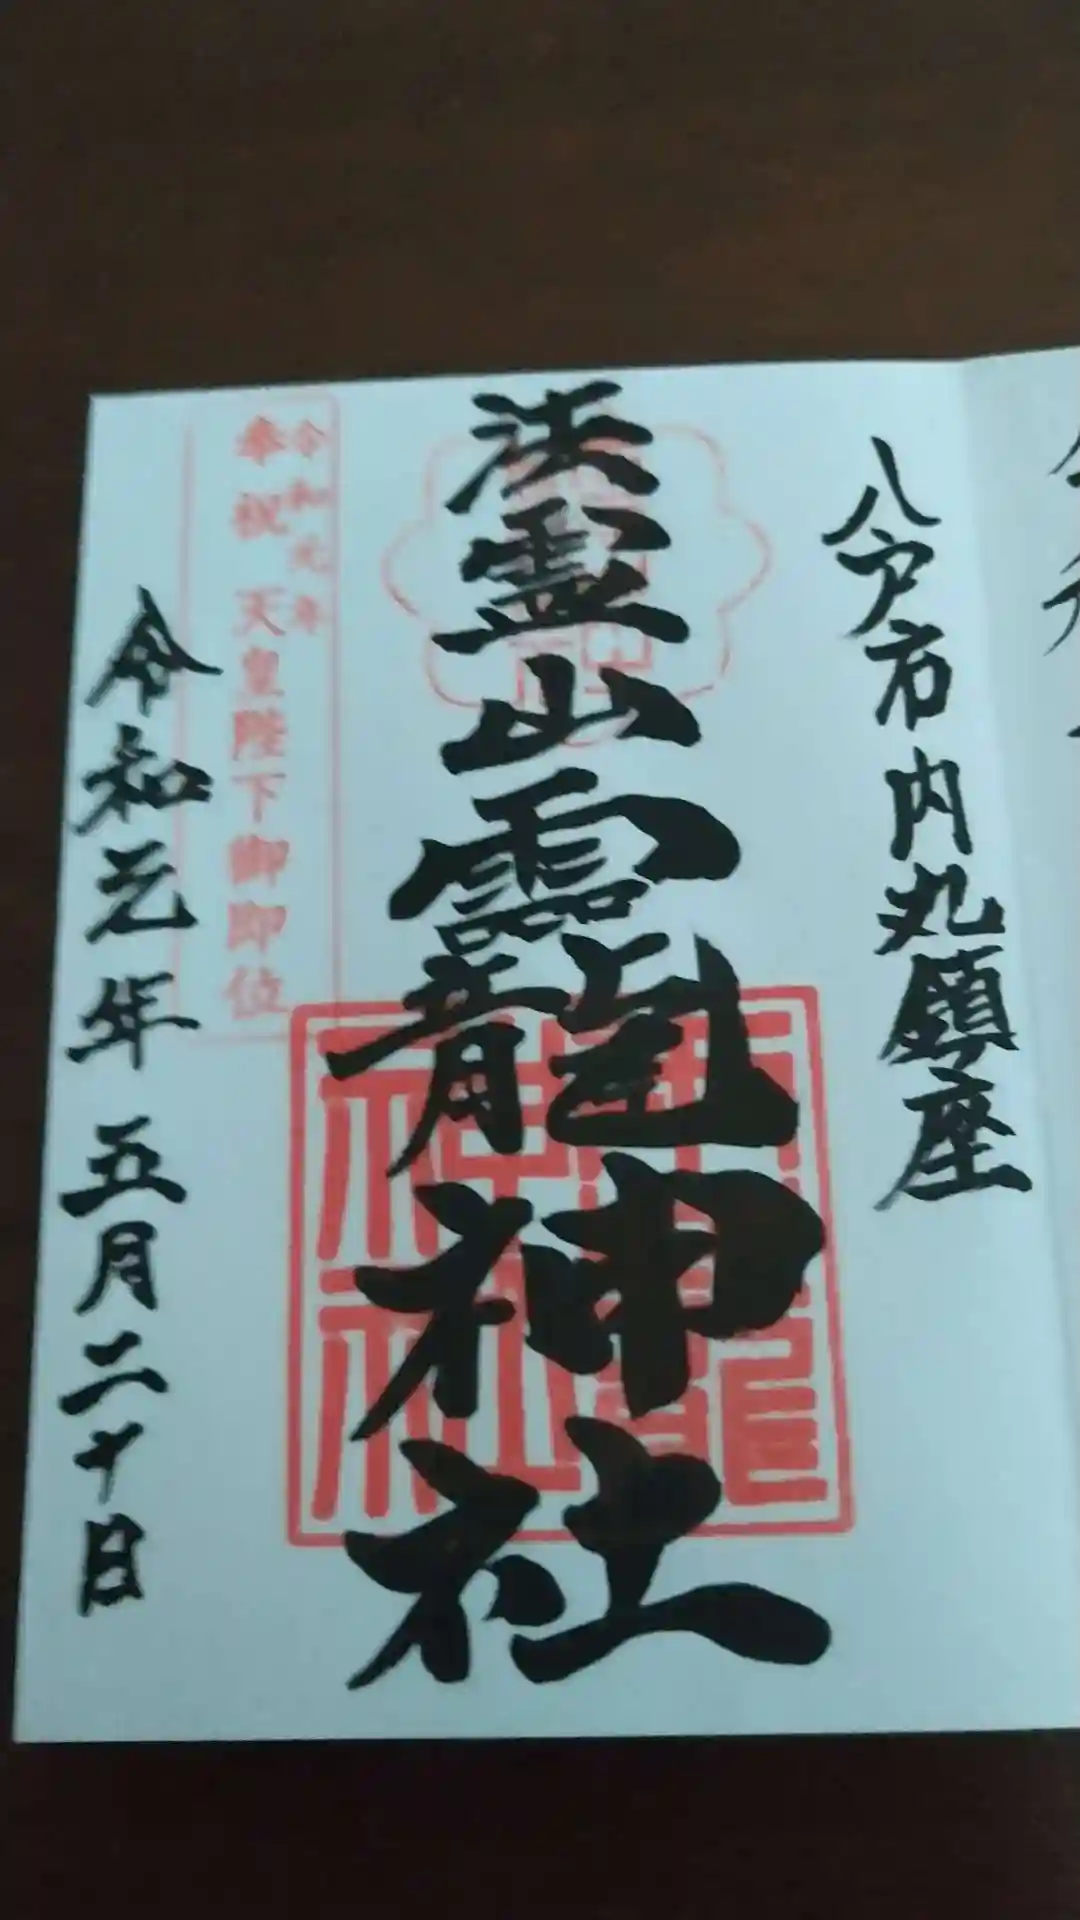 八戸市内丸鎮座
法霊山龗神社
令和元年
奉祝 天皇陛下御即位
令和元年 五月二十日